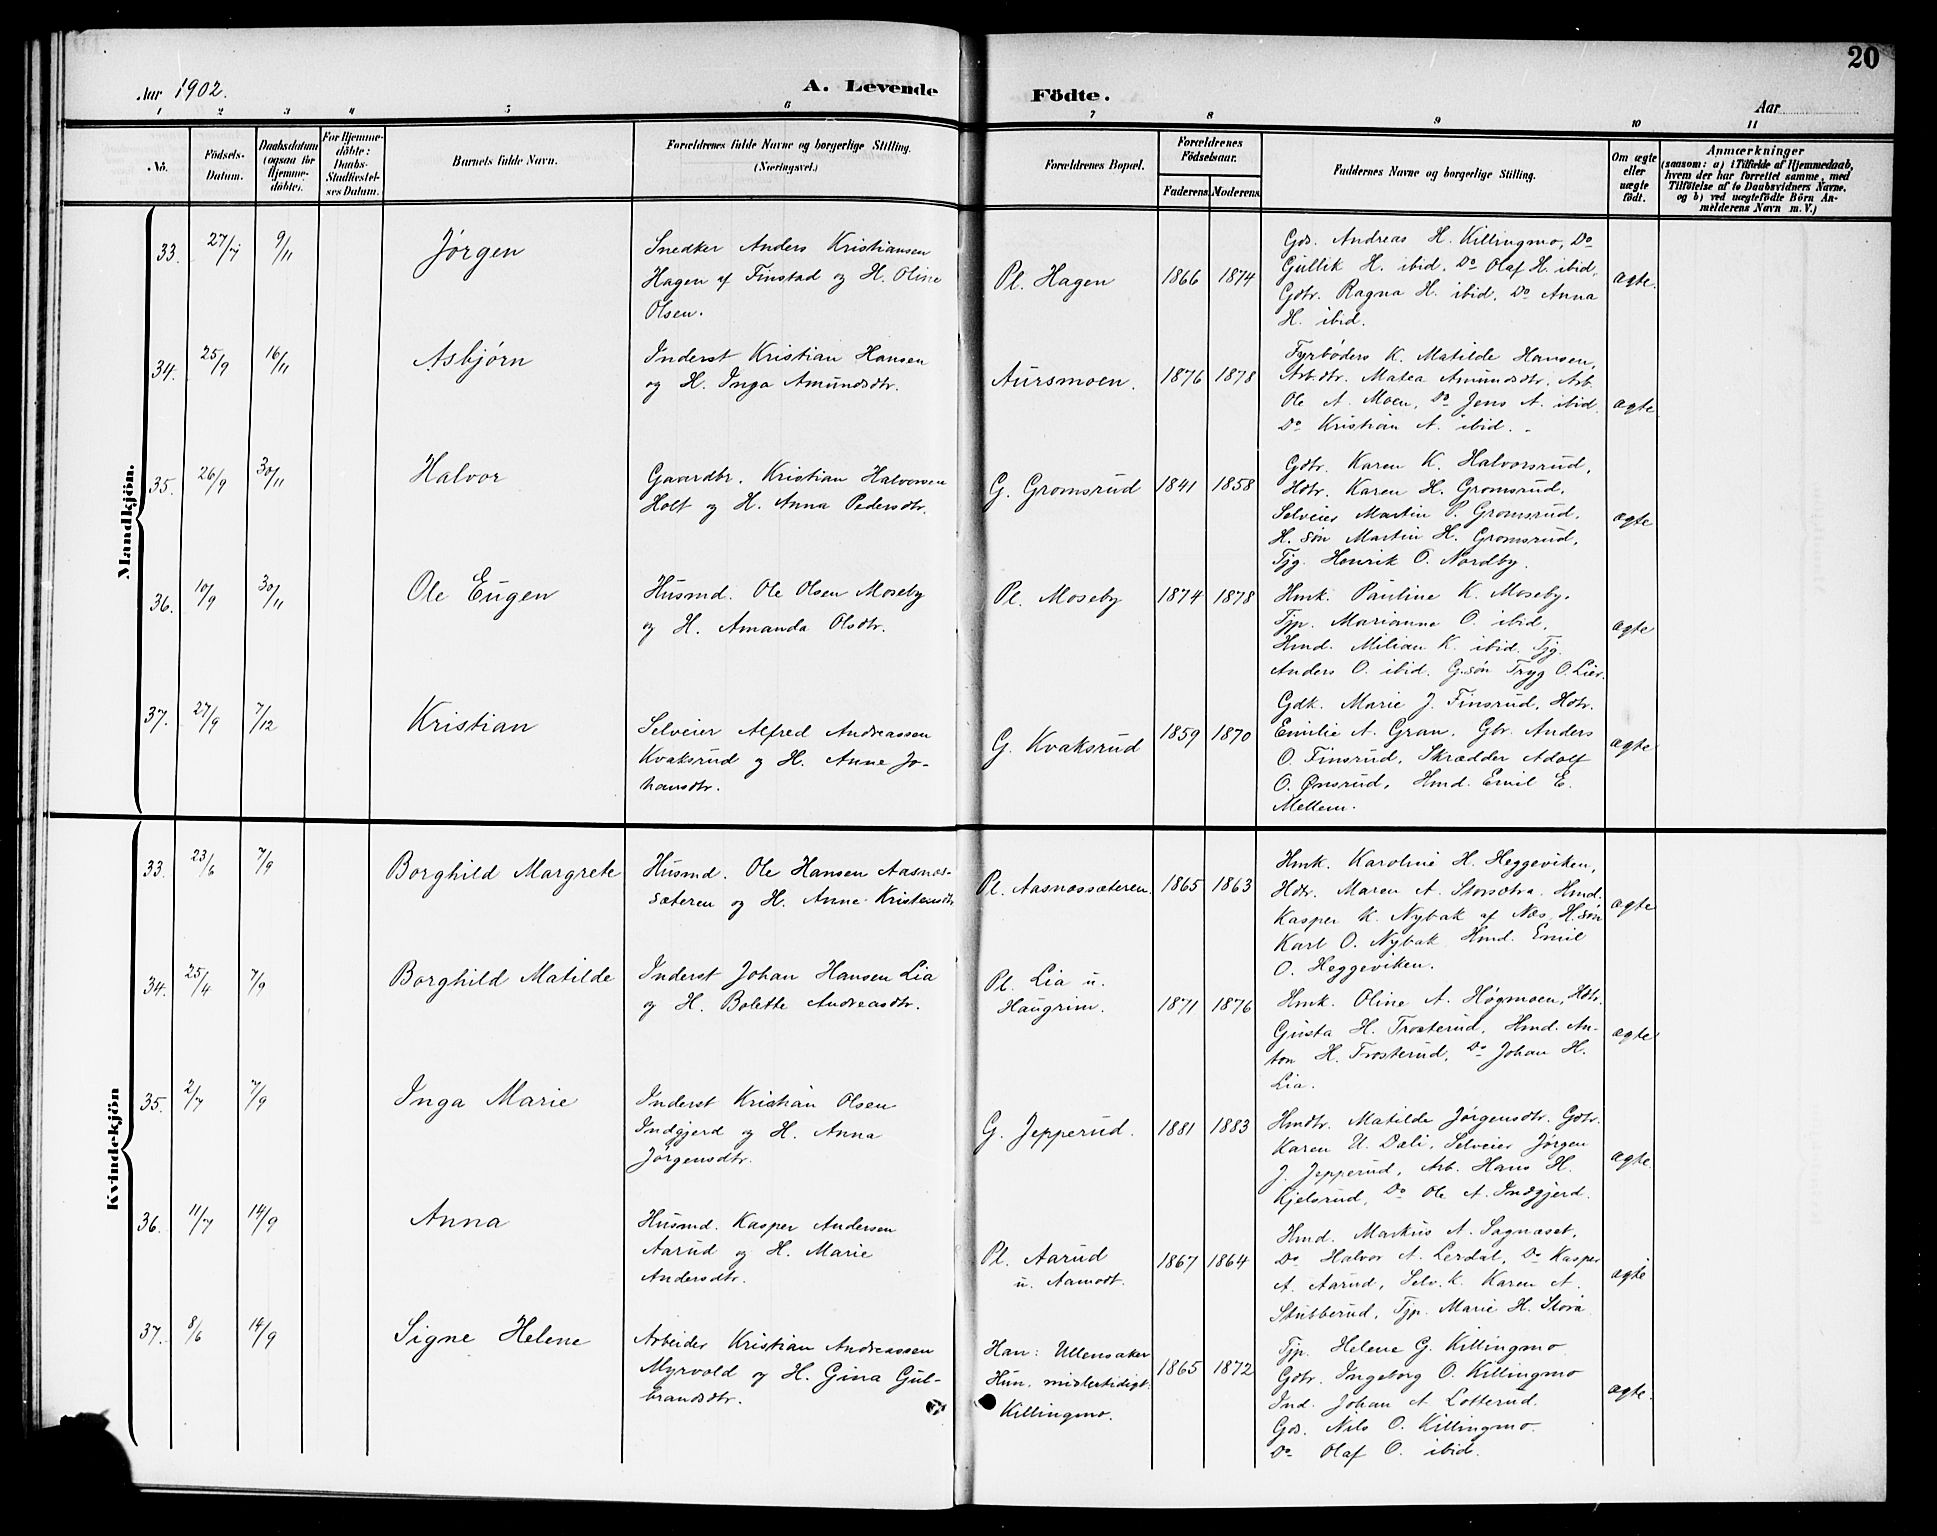 20
Aar 1902.
A. Levende Födte.
Aar
1 2 3 4 5 6 7 8 9 10 11
No.
Födsels-Datum.
Daabsdatum (ogsaa for Hjemmedöbte).
For Hjemmedöbte: Daabs-Stadfæstelses Datum.
Barnets fulde Navn.
Forældrenes fulde Navne og borgerlige Stilling.
(Næringsvei.)
Forældrenes Bopæl.
Forældrenes Födselsaar.
Faderens. Moderens.
Faddernes Navne og borgerlige Stilling.
Om ægte eller uægte födt.
Anmærkninger
(saasom: a) i Tilfælde af Hjemmedaab,
hvem der har forrettet samme, med
Tilföielse af to Daabsvidners Navne.
og b) ved uægtefödte Börn An-
melderens Navn m. V.)
Mandkjön.
33. 27/7 9/11 Jørgen
Snedker Anders Kristiansen
Hagen af Finstad og H. Oline
Olsen.
Pl. Hagen 1866 1874
Gds. Andreas H. Killingmo, Do
Gullik H. ibid, Do Olaf H. ibid,
Gdtr. Ragna H. ibid. Do Anna
H. ibid.
ægte.
34. 25/9 16/11 Asbjørn
Inderst Kristian Hansen
og H. Inga Amundsdtr.
Aursmoen. 1876 1878
Fyrbøders K. Matilde Hansen,
Arb.dtr. Matea Amundsdtr. Arb.
Ole A. Moen, Do Jens A. ibid.
Do Kristian A. ibid.
ægte
35. 26/9 30/11 Halvor
Gaardbr. Kristian Halvorsen
Holt og H. Anna Pedersdtr.
G. Gromsrud 1841 1858
Gdtr. Karen K. Halvorsrud,
Hdtr. Karen H. Gromsrud.
Selveier Martin P. Gromsrud.
H. søn Martin H. Gromsrud,
Tjg. Henrik O. Nordby.
ægte
36. 10/9 30/11 Ole Eugen
Husmd. Ole Olsen Moseby
og H. Amanda Olsdtr.
Pl. Moseby 1874 1878
Hmk. Pauline K. Moseby.
Tjp. Marianne O. ibid,
Hmd. Milian K. ibid. Tjg.
Anders O. ibid. G.søn Tryg O. Lier.
ægte
37. 27/9 7/12 Kristian
Selveier Alfred Andreassen
Kvaksrud og H. Anne Jo-
hansdtr.
G. Kvaksrud 1859 1870
Gdk. Marie J. Finsrud, Hdtr.
Emilie A. Gran. Gbr. Anders
O. Finsrud, Skrædder Adolf
O. Ønsrud, Hmd. Emil E.
Mellem.
ægte
Kvindekjön
33. 23/6 7/9 Borghild Margrete
Husmd. Ole Hansen Aasnæs-
sæteren og H. Anne Kristensdtr
Pl. Aasnæssæteren. 1865 1863
Hmk. Karoline H. Heggeviken,
Hdtr. Maren A. Storsætra. Hmd.
Kasper K. Nybak af Næs, H.søn
Karl O. Nybak. Hmd. Emil
O. Heggeviken.
ægte
34. 25/4 7/9 Borghild Matilde
Inderst Johan Hansen Lia
og H. Bolette Andreasdtr.
Pl. Lia u.
Haugrim.
1871 1876
Hmk. Oline A. Høgmoen, Hdtr.
Gusta H. Trosterud, Hmd. An-
ton H. Trosterud, Do Johan H.
Lia.
ægte
35. 2/7 7/9 Inga Marie
Inderst Kristian Olsen
Indgjerd og H. Anna
Jørgensdtr.
G. Jepperud. 1881 1883
Hmdtr. Matilde Jørgensdtr. Gdtr.
Karen U. Dæli, Selveier Jørgen
J. Jepperud, Arb. Hans H.
Kjelsrud, Do Ole A. Indgjerd.
ægte
36. 11/7 14/9 Anna
Husmd. Kasper Andersen
Aarud og H. Marie
Andersdtr.
Pl. Aarud
u. Aamodt.
1867 1864
Hmd. Markus A. Sagnæset,
Do Halvor A. Lerdal, Do Kasper
A. Aarud, Selv.k. Karen A.
Stubberud, Tjp. Marie H. Stora
ægte
37. 8/6 14/9 Signe Helene
Arbeider Kristian Andreassen
Myrvold og H. Gina Gul-
brandsdtr.
Han: Ullensaker
Hun. midlertidigt.
Killingmo.
1865 1872
Tjp. Helene G. Killingmo
Gdtr. Ingeborg O. Killingmo
Ind. Johan A. Lotterud.
Gds. Nils O. Killingmo.
Do Olaf O. ibid.
ægte.